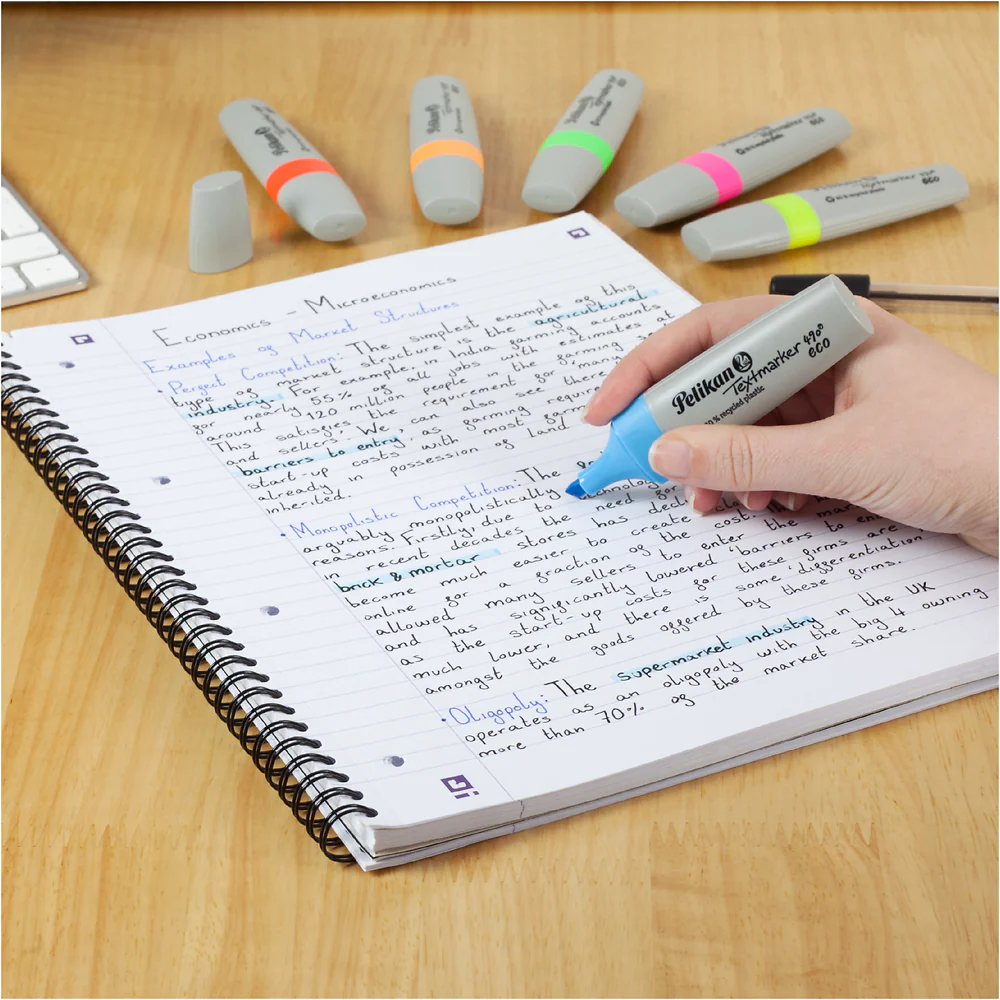 Economics - Microeconomics
Examples of Market Structures
· Perfect Competition: The simplest example of this
type of market structure is the agricultural
industry. For example, in India farming accounts
for nearly 55% of all jobs with estimates at
around 120 million people in the farming
This satisfies the requirement for many
and sellers. We can also see there
barriers to entry, as farming requires
start-up costs with most farm
already in possession of land
inherited.
· Monopolistic Competition: The
arguably monopolistically
reasons. Firstly, due to technology
in recent decades the need for
brick & mortar stores has
become much easier to create
online for a fraction of the cost. The
allowed many sellers to enter the mar
and has significantly lowered 'barriers to
as the start-up costs for these firms are
much lower, and there is some differentiation
amongst the goods offered by these firms.
· Oligopoly: The supermarket industry in the UK
operates as an oligopoly with the big 4 owning
more than 70% of the market share.
Pelikan
Textmarker 490®
eco
% recycled plastic
Pelikan
Pelikan
Pelikan
Textmarker
eco
Textmarker
eco